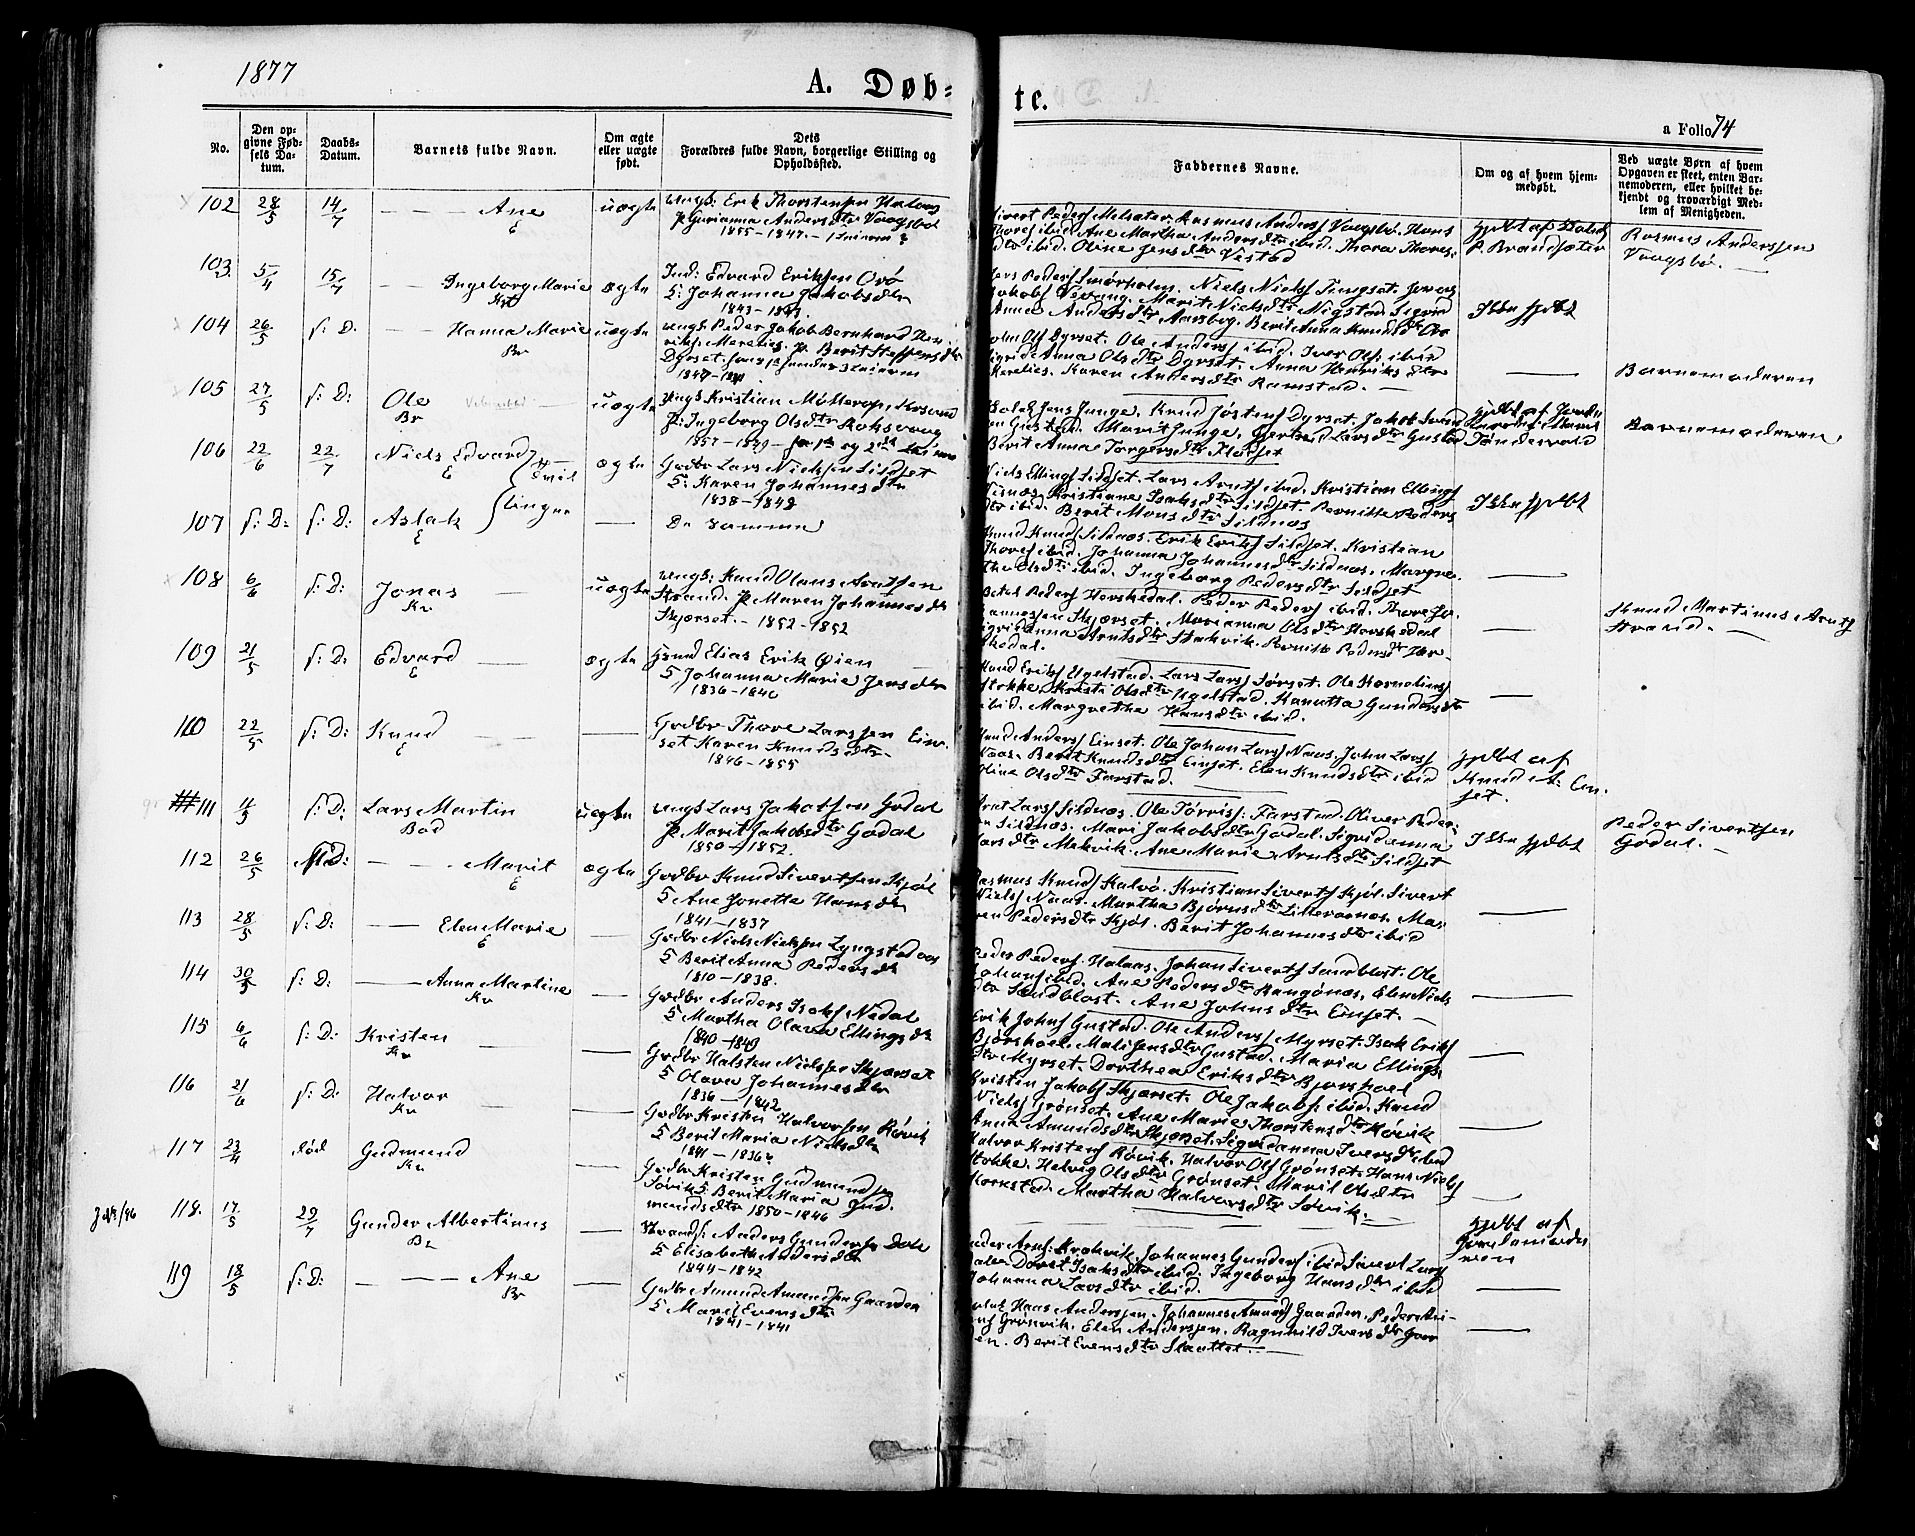 1877
A. Døb=
te.
a Folio 74
No.
Den opgivne Fødsels Datum.
Daabs-Datum.
Barnets fulde Navn.
Om ægte eller uægte født.
Dets Forældres fulde Navn, borgerlige Stilling og Opholdssted.
Faddernes Navne.
Om og af hvem hjemmedøbt.
Ved uægte Børn af hvem Opgaven er skeet, enten Barnemoderen, eller hvilket bekjendt og troværdigt Medlem af Menigheden.
102 28/5 14/7 — Ane uægte Ungk: Erik Thorstensen
P. Gurianna Andersdtr Vaagsbø
1855-1847.
Sivert Peders Melsæter. Rasmus Anders Vaagsbø. Hans
Thores ibid. Ane Martha Andersdtr ibid. Thora Thores-
dtr ibid. Oline Jensdtr Vestad
P. Brandsæter
Rasmus Anderssen
Vaagsbø. —
103 5/4 15/7 — Ingeborg Marie ægte Ind: Edvard Eriksen Orø
Kv
Johanna Jakobsdtr
Niels Niels Tingset. Jonas
Jakobs Vevang. Marit Nielsdtr Nigstad. Sigrid
Ikke hjdbt
104 26/5 s: D. — Hanna Marie uægte Ungk: Peder Jakob Bernhard Hen-
Br
riks. Merelies. P. Berit Steffensdtr
Dyrset.
Ole Anders ibid. Iver Ols: ibid
Anna Olsdtr Dyrset. Anna Henriksdtr
Merelies. Karen Andersdtr Ramstad. —
Barnemoderen
105 27/5 s: D: Ole uægte Ungk Kristian Møllerop, Krsund
Br
P: Ingeborg Olsdtr Roksvaag
Jens Junge. Knud Jøstens Dyrset.
Marit Junge. Gertrud Larsdtr Gustad
Berit Anna Torgersdtr Flatset
Barnemoderen
106 22/6 22/7 Niels Edvard ægte Grdbr Lars Nielsen Sildset
E
Tvil
lingne
Karen Johannesdtr
1838-1842
Niels Ellings Sildset. Lars Arnts ibid. Kristian Ellings
Kristiane Isaksdtr Sildset. Pernille Peders
dtr ibid. Berit Monsdtr Sildnæs
Ikke hjdbt
107 s: D: s: D: Aslak — De samme
E
Knud Knuds Sildnæs. Erik Eriks Sildset. Kristian
Thores ibid. Johanna Johannesdtr Sildnæs. Margre-
the Olsdtr ibid. Ingeborg Pedersdtr Sildset
108 6/6 s: D: Jonas uægte Ungk: Knud Olaus Arntsen
Kv
Strand. P. Maren Johannesdtr
Skjørset. - 1852-1852
Peders Horskedal. Peder Peders ibid. Thore Jo-
hannessen Skjørset. Marianna Olsdtr Horskedal
Sigridanna Arntsdtr Stakvik. Pernille Pedersdtr Hor-
skedal.
Knud Martinus Arnts
Strand. —
109 21/5 s: D. Edvard ægte Elias Erik Øien
E
Johanna Marie Jensdtr
1836-1840
Knud Eriks Ugelstad. Lars Lars Sørset. Ole Kornelius
Stokke. Kristi Olsdtr Ugelstad. Hanetta Gundersdtr
ibid. Margrethe Hansdtr ibid.
110 22/5 s: D. Knud — Grdbr Thore Larssen Ein-
E
set Karen Knudsdtr
1846-1855
Knud Anders Einset. Ole Johan Lars Naas. John Lars
Naas. Berit Knudsdtr Einset. Elen Knudsdtr ibid
Oline Olsdtr Farstad.
hjdbt af
Knud A: Ein-
set.
111 11/5 s: D: Lars Martin uægte Ungk Lars Jakobsen Godal
Bod
P. Marit Jakobsdtr Godal
1850-1852.
Arnt Lars Sildnæs. Ole Tørris: Farstad. Oliver Peder-
sen Sildnæs. Mari Jakobsdtr Godal. Sigridanna
Larsdtr Mekvik. Ane Marie Arntsdtr Sildset
Ikke hjdbt
Peder Sivertsen
Godal. —
112 26/5 s: D: — Marit ægte Grdbr Knud Sivertsen Skjøl
E
Ane Jonetta Hansdtr
1841-1837
Rasmus Knuds Kalvø. Kristian Siverts Skjøl. Sivert
Niels Naas. Martha Bjørnsdtr Lillevarnes. Ma-
ren Pedersdtr Skjøl. Berit Johannesdtr ibid
113 28/5 s: D. — Elen Marie — Grdbr Niels Nielsen Lyngstadaas
E
Berit Anna Pedersdtr
1810-1838.
Peder Peders. Halaas. Johan Siverts Sandblost. Ole
Johans ibid. Ane Pedersdtr Rangønæs. Elen Niels
dtr Sandblost. Ane Johnsdtr Einset. —
114 30/5 s: D: — Anna Martine — Grdbr Anders Isaks Nedal
Kv
Martha Olava Ellingsdtr
1840-1849
Erik Johns Gustad. Ole Anders Myrset. Isak Eriks
Bjørshoel. Mali Jensdtr Gustad. Maria Ellings-
dtr Myrset. Dorthea Eriksdtr Bjørshoel
115 6/6 s: D: Kristen — Grdbr Halsten Nielssen Skjørset
Kv
Olava Johannesdtr
1836-1842
Kristen Jakobs Skjørset. Ole Jakobs: ibid. Knud
Niels Grønset. Ane Marie Thorstensdtr Røvik
Anna Amundsdtr Skjørset. Sigridanna Iversdtr ibid
116 21/6 s: D: Halvor — Grdbr Kristen Halvorsen Røvik
Kv
Berit Maria Nielsdtr
1841-1836
Halvor Kristens Røvik. Halvor Ols Grønset. Hans Niels
Stokke. Helvig Olsdtr Grønset. Marit Olsdtr
Harestad. Martha Halvorsdtr Søvik. —
117 23/4 død Gudmund — Grdbr Kristen Gudmundsen
Kv
Søvik Berit Maria Gud-
mundsdtr 1850-1846
118. 17/5 29/7 Gunder Albertinus — Strands: Anders Gundersen Dale
Br
Elisabeth Andersdtr
1844-1842
Peder Arns: Krokvik. Johannes Gunders ibid Sivert Lars
Dale. Doret Isaksdtr ibid. Ingeborg Hansdtr ibid
Johanna Larsdtr ibid.
hjdbt af
Jordemoder
119 18/5 s: D: — Ane — Grdbr Amund Amundsen Gaarden
Br
Marit Evensdtr
1841-1841
Hans Anderssen. Johannes Amunds Gaarden. Peder
Grønvik. Elen Anderssen. Ragnhild Iversdtr Gaar
en. Berit Evensdtr Slattet. —